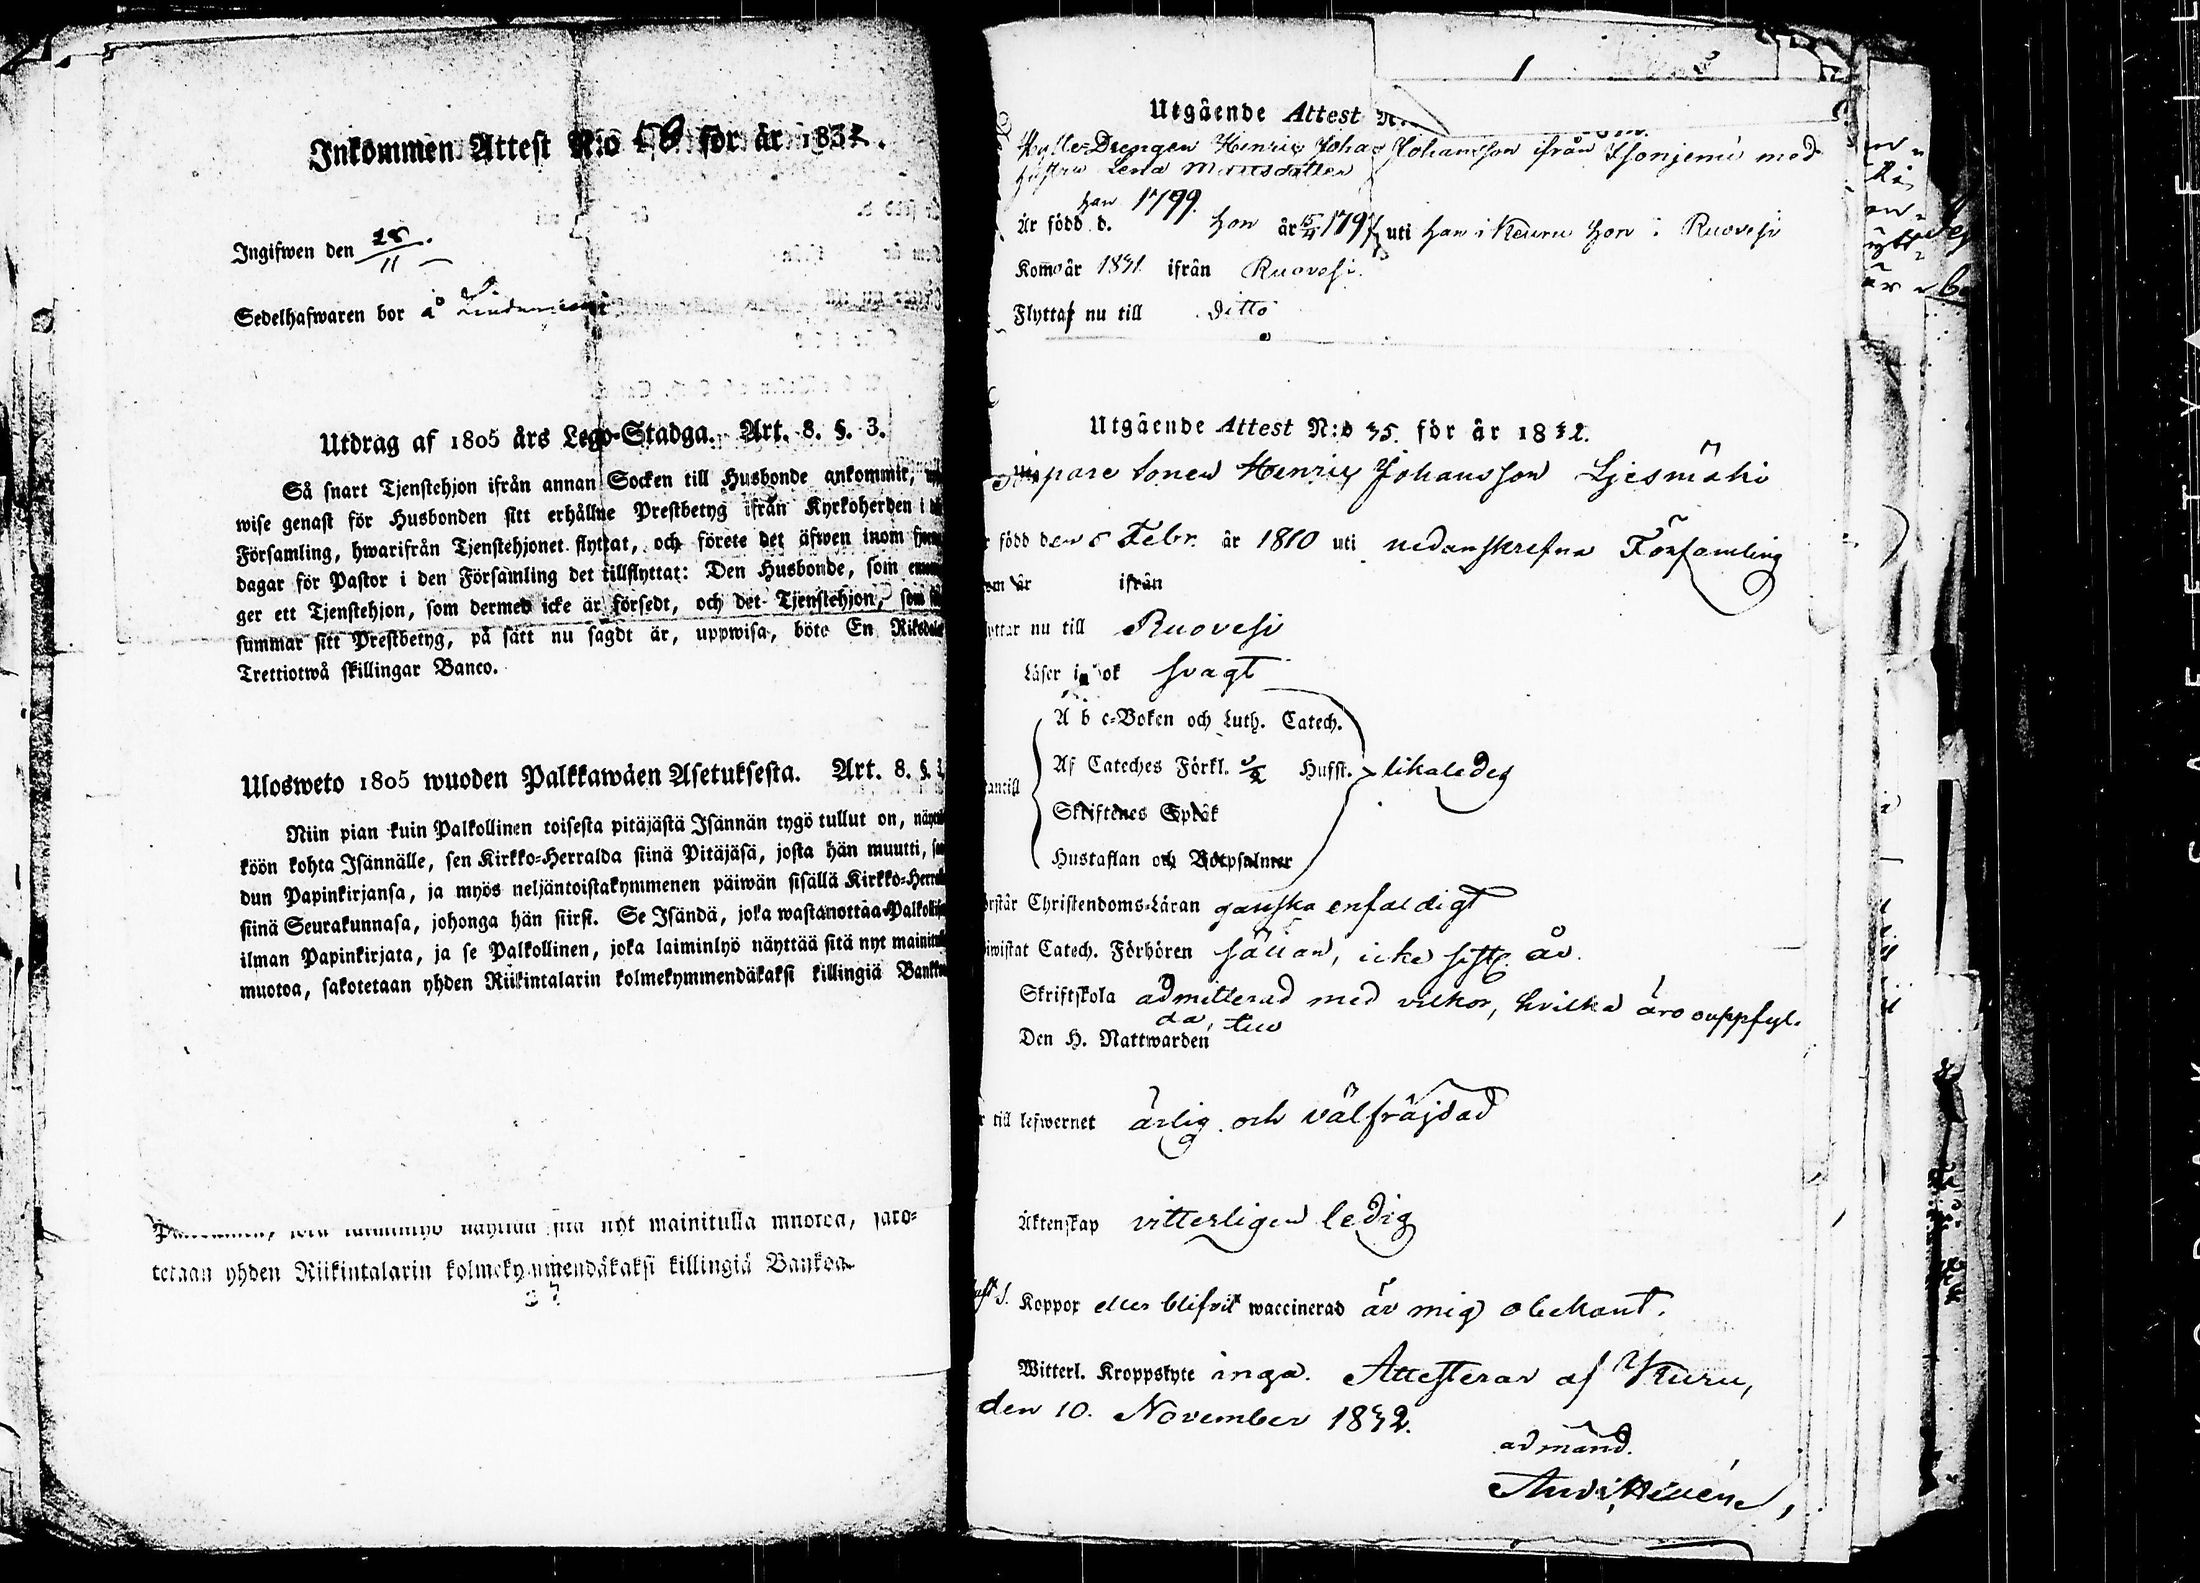 Inkommen Attest N:o 58 för år 1832.
Ingifwen den 28/11
Sedelhafwaren bor å
Utdrag af 1805 års Lego-Stadga. Art. 8. §. 3.
Så snart Tjenstehjon ifrån annan Socken till Husbonde ankommit,
wise genast för Husbonden sitt erhållne Prestbetyg ifrån Kyrkoherden i
Församling, hwarifrån Tjenstehjonet flyttat, och förete det äfwen inom
dagar för Pastor i den Församling det tillflyttat: Den Husbonde, som
ger ett Tjenstehjon, som dermed icke är försedt, och det Tjenstehjon, som
summar sitt Prestbetyg, på sätt nu sagdt är, uppwisa, böte En Riksdaler
Trettiotwå skillingar Banco.
Ulosweto 1805 wuoden Palkkawäen Asetuksesta. Art. 8. §. 3.
Niin pian kuin Palkollinen toisesta pitäjästä Isännän tygö tullut on,
köön kohta Isännälle, sen Kirkko-Herralda siinä Pitäjäsä, josta hän muutti,
dun Papinkirjansa, ja myös neljäntoistakymmenen päiwän sisällä Kirkko-Herralle
siinä Seurakunnasa, johonga hän siirst. Se Isändä, joka wastanottaa Palkollisen
ilman Papinkirjata, ja se Palkollinen, joka laiminlyö näyttää sitä nyt mainitulla
muotoa, sakotetaan yhden Riikintalarin kolmekymmendäkaksi killingiä Bankoa
nyt mainitulla muotoa, sako-
tetaan yhden Riikintalarin kolmekymmendäkaksi killingiä Bankoa.
1
Utgående Attest N:
Drengen Henric Johan Johansson ifrån med
hustru Lena
Är född d. han 1799. hon år 15/4 179 uti han i Keuru hon i Ruovesi
Kom år 1831 ifrån Ruovesi.
Flyttar nu till ditto
Utgående Attest N:o 35. för år 1832.
sonen Henric Johansson Ljesmäki
född den 5 Febr. år 1810 uti nedanskrefna Församling
om år ifrån
yttar nu till Ruovesi
Läser i bok svagt
A b c-Boken och Luth. Catech.
Af Cateches Förkl. Husst. likaledes
antill
Skriftenes Språk
Hustaflan och Botpsalmer
örstår Christendoms-Läran ganska enfaldigt
iwistat Catech. Förhören sällan, icke sistl. år.
Skriftskola admitterad med vilkor, hvilka äro ouppfyl-
da,
Den H. Nattwarden
r till lefwernet ärlig och välfräjdad
Äktenskap vitterligen ledig
haft s. Koppor eller blifvit waccinerad är mig obekant.
Witterl. Kroppslyte inga. Attesterar af Kuru,
den 10. November 1832.
ad mand.